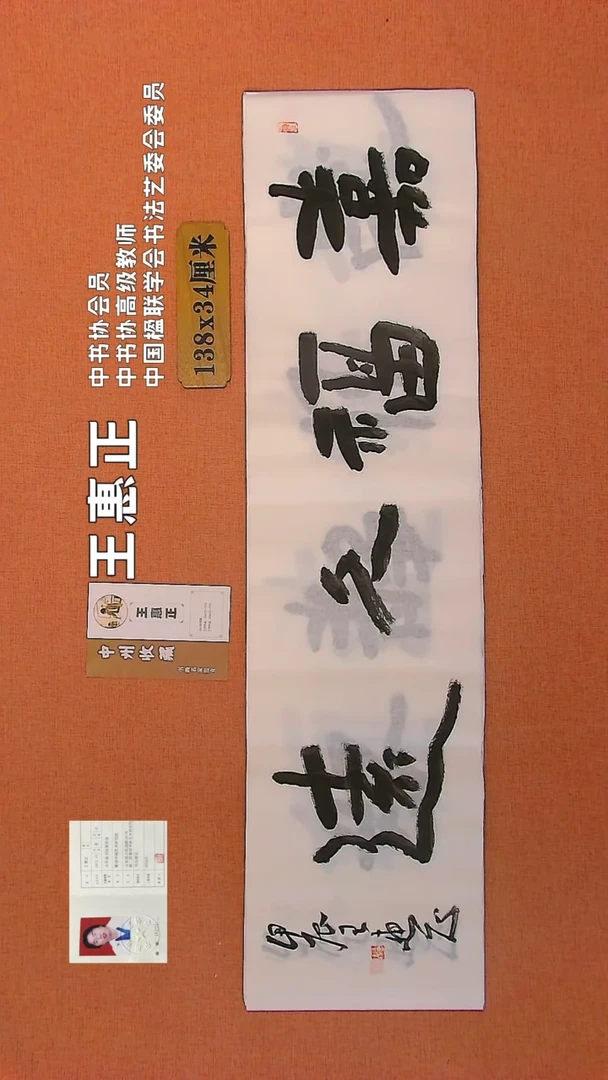 中书协会员
中书协高级教师
中国楹联学会书法艺委会委员
王惠正
138x34厘米
王惠正
中州收藏
嘉福久遠
甲辰王惠正